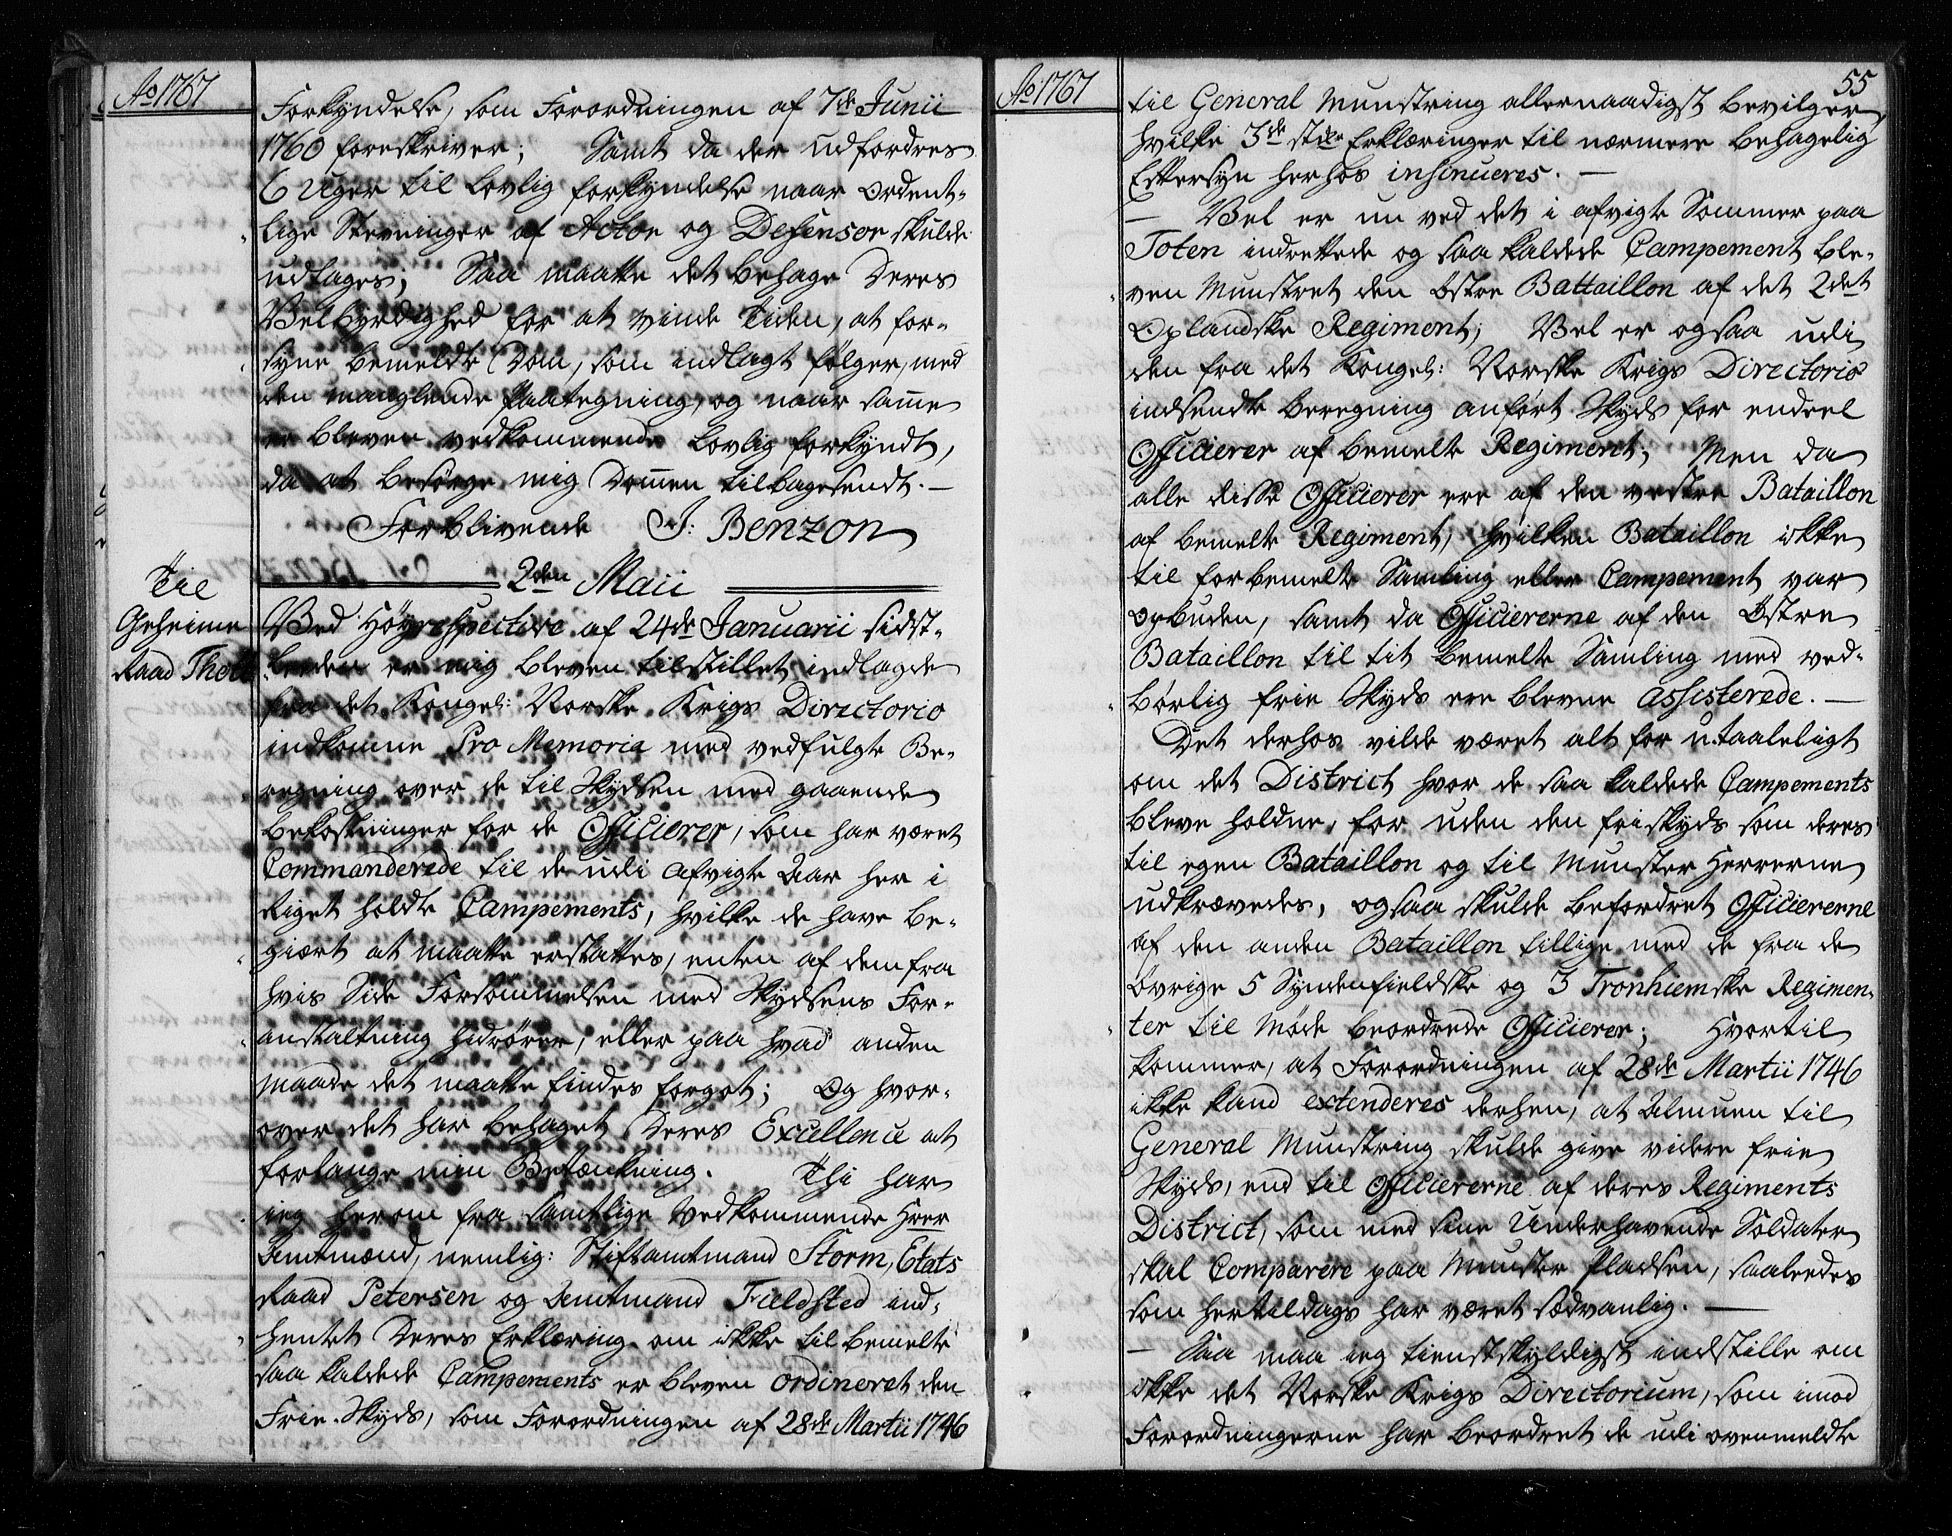 Ao 1767
Forkyndelse, som Forordningen af 7de Junii
1760 foreskriver; Samt da der udfordres
6 Uger til lovlig forkyndelse naar Ordent-
lige Stevninger af Actor og Defensor skulde
udtages; Saa maatte det behage Deres
Velbyrdighed for at vinde Tiden, at for-
syne bemelde Dom, som indlagt følger, med
den manglende Paategning, og naar samme
er bleven vedkommende lovlig forkyndt,
da at besørge mig Dommen tilbagesendt. —
Forblivende J: Benzon
2den Maii
Til
Geheime
Raad Thott
Ved Høyrespective af 24de Januarii sidst-
leeden er mig bleven tilstillet indlagde
fra det Kongel: Norske Krigs Directorio
indkomne Pro Memoria med vedfulgte Be-
regning over de til Skydsen med gaaende
bekostninger for de Officierer, som har været
Commanderede til de udi afvigte Aar her i
Riget holdte Campements, hvilke de have be-
giært at maatte erstattes, enten af dem fra
hvis Side Forsømmelsen med Skydsens For-
anstaltning hidrører, eller paa hvad anden
maade det maatte findes forgot; Og hvor-
over det har behaget Deres Excellence at
forlange min Betænkning. Thi har
ieg herom fra samtlige Vedkommende Hrer
Amtmænd, nemlig: Stiftamtmand Storm, Etats
Raad Petersen og Amtmand Fieldsted ind-
hentet Deres Erklæring om ikke til bemelte
saa kaldede Campements er bleven ordineret den
Frie Skyds, som Forordningen af 28de Martii 1746
Ao 1767
55
til General Munstring allernaadigst bevilger,
hvilke 3de stkr Erklæringer til nærmere behagelig
Eftersyn herhos insinueres. —
— Vel er nu ved det i afvigte Sommer paa
Toten indrettede og saa kaldede Campement ble-
ven Munstret den Østre Battaillon af det 2det
Oplandske Regiment; Vel er ogsaa udi
den fra det Kongel: Norske Krigs Directorio
indsendte beregning anført Skyds for endeel
Officierer af bemelte Regiment; Men da
alle disse Officierer ere af den vestre Bataillon
af bemelte Regiment, hvilken Bataillon ikke
til forbemelte Samling eller Campement var
opbuden, samt da Officiererne af den Østre
Bataillon til tit bemelte Samling med ved-
børlig frie Skyds ere blevne assisterede. —
Det derhos vilde været alt for utaaleligt
om det District hvor de saa kaldede Campements
bleve holdne, for uden den friskyds som deres
til egen Bataillon og til Munster Herrerne
udkrævedes, ogsaa skulde befordret Officiererne
af den anden Bataillon tillige med de fra de
øvrige 5 Syndenfieldske og 3 Tronhiemske Regimen-
ter til Møde beordrede Officierer; Hvortil
kommer, at Forordningen af 28de Martii 1746
ikke kand extenderes derhen, at Almuen til
General Munstring skulde give videre frie
Skyds, end til Officiererne af deres Regiments
District, som med sine Underhavende Soldater
skal Comparere paa Munster Pladsen, saaledes
som hertildags har været sædvanlig. —
— Saa maa ieg tienstskyldigst indstille om
ikke det Norske Krigs Directorium, som imod
Forordningerne har beordret de udi ovenmeldte